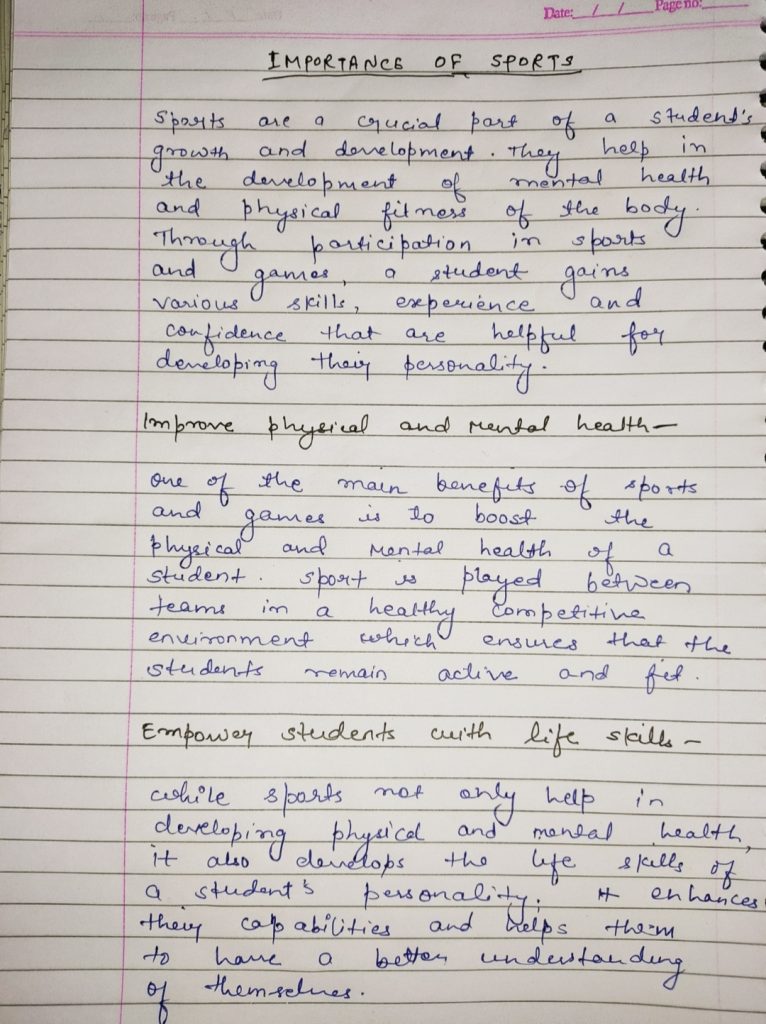 Date: / / Page no:
IMPORTANCE OF SPORTS
Sports are a crucial part of a student's
growth and development. They help in
the development of mental health
and physical fitness of the body.
Through participation in sports
and games, a student gains
various skills, experience and
confidence that are helpful for
developing their personality.
Improve physical and Mental health–
One of the main benefits of sports
and games is to boost the
physical and Mental health of a
student. sport is played between
teams in a healthy competitive
environment which ensures that the
students remain active and fit.
Empower students with life skills–
while sports not only help in
developing physical and mental health,
it also develops the life skills of
a student's personality. It enhances
their capabilities and helps them
to have a better understanding
of themselves.